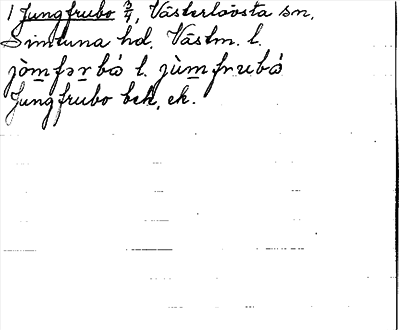 1 Jungfrubo 3/4, Västerlövsta sn.
Simtuna hd. Västm. l.
jòm̲fər̲bá l. jùm̲frubá
Jungfrubo bek, ek.